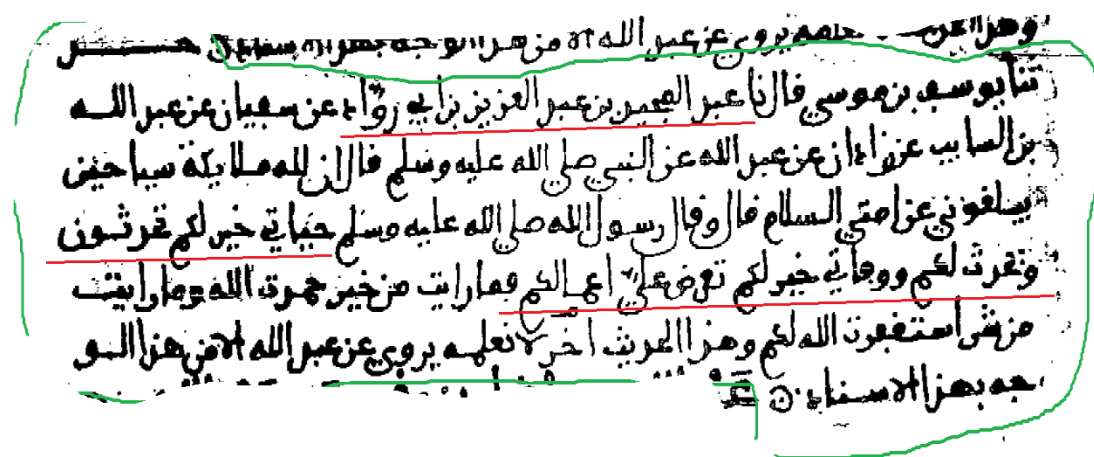 وهذا عن نعلمه يروي عن عبد الله الا من هذا الوجه بهذا الاسناد
ثنا يوسف بن موسى قال نا عبد المجيد بن عبد العزيز بن ابي رواد عن سفيان عن عبد اللـه
بن السايب عن زاذان عن عبد الله عن النبي صلى الله عليه وسلم قال ان لله ملايكة سياحين
يبلغوني عن امتي السلام قال وقال رسول الله صلى الله عليه وسلم حياتي خير لكم تحدثون
وتحدث لكم ووفاتي خير لكم تعرض علي اعمالكم فما رايت من خير حمدت الله وما رايت
من شر استغفرت الله لكم وهذا الحديث اخر لا نعلمه يروي عن عبد الله الا من هذا الو
جه بهذا الاسناد